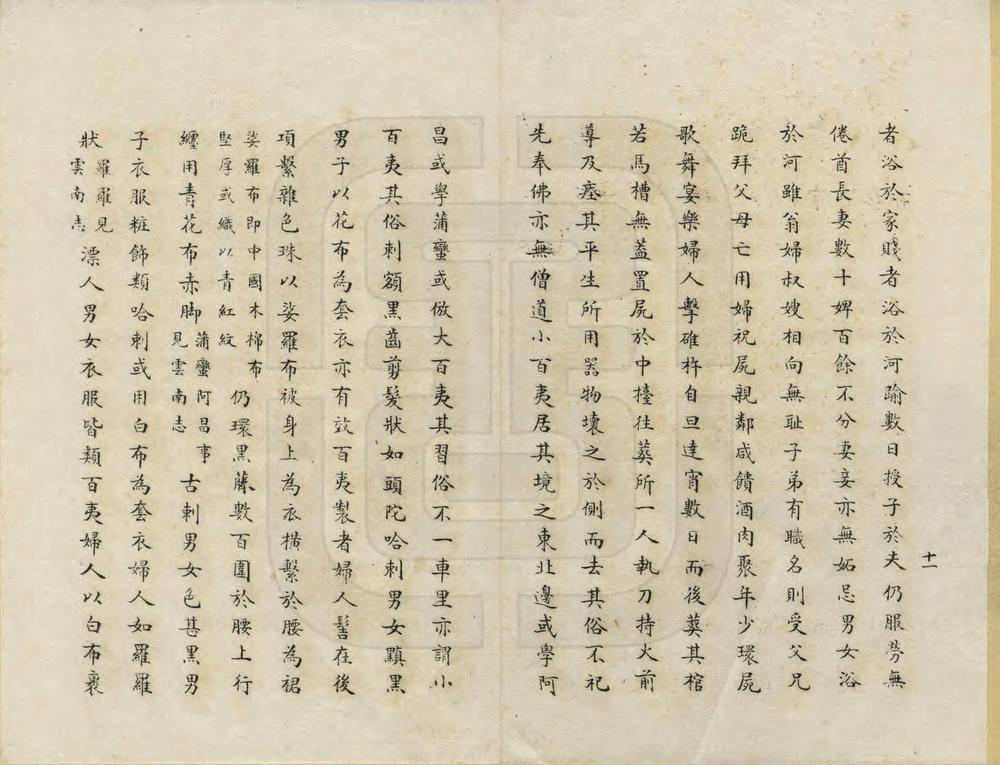 者浴於家賤者浴於河踰數日授子於夫仍服勞無
倦酋長妻數十婢百餘不分妻妾亦無妬忌男女浴
於河雖翁婦叔嫂相向無耻子弟有職名則受父兄
跪拜父母亡用婦祝屍親鄰咸饋酒肉聚年少環屍
歌舞宴樂婦人擊碓杵自旦達宵數日而後葬其棺
若馬槽無蓋置屍於中擡往葬所一人執刀持火前
導及瘞其平生所用器物壞之於側而去其俗不祀
先奉佛亦無僧道小百夷居其境之東北邊或學阿
十一
昌或學蒲蠻或倣大百夷其習俗不一車里亦謂小
百夷其俗刺額黑齒剪髮狀如頭陀哈剌男女黥黑
男子以花布為套衣亦有效百夷製者婦人髻在後
項繫雜色珠以娑羅布被身上為衣橫繫於腰為裙
娑羅布即中國木棉布
堅厚或織以青紅紋
仍環黑藤數百圍於腰上行
纏用青花布赤脚
蒲蠻阿昌事
見雲南志
古剌男女色甚黑男
子衣服粧飾類哈剌或用白布為套衣婦人如羅羅
狀
羅羅見
雲南志
漂人男女衣服皆類百夷婦人以白布裹